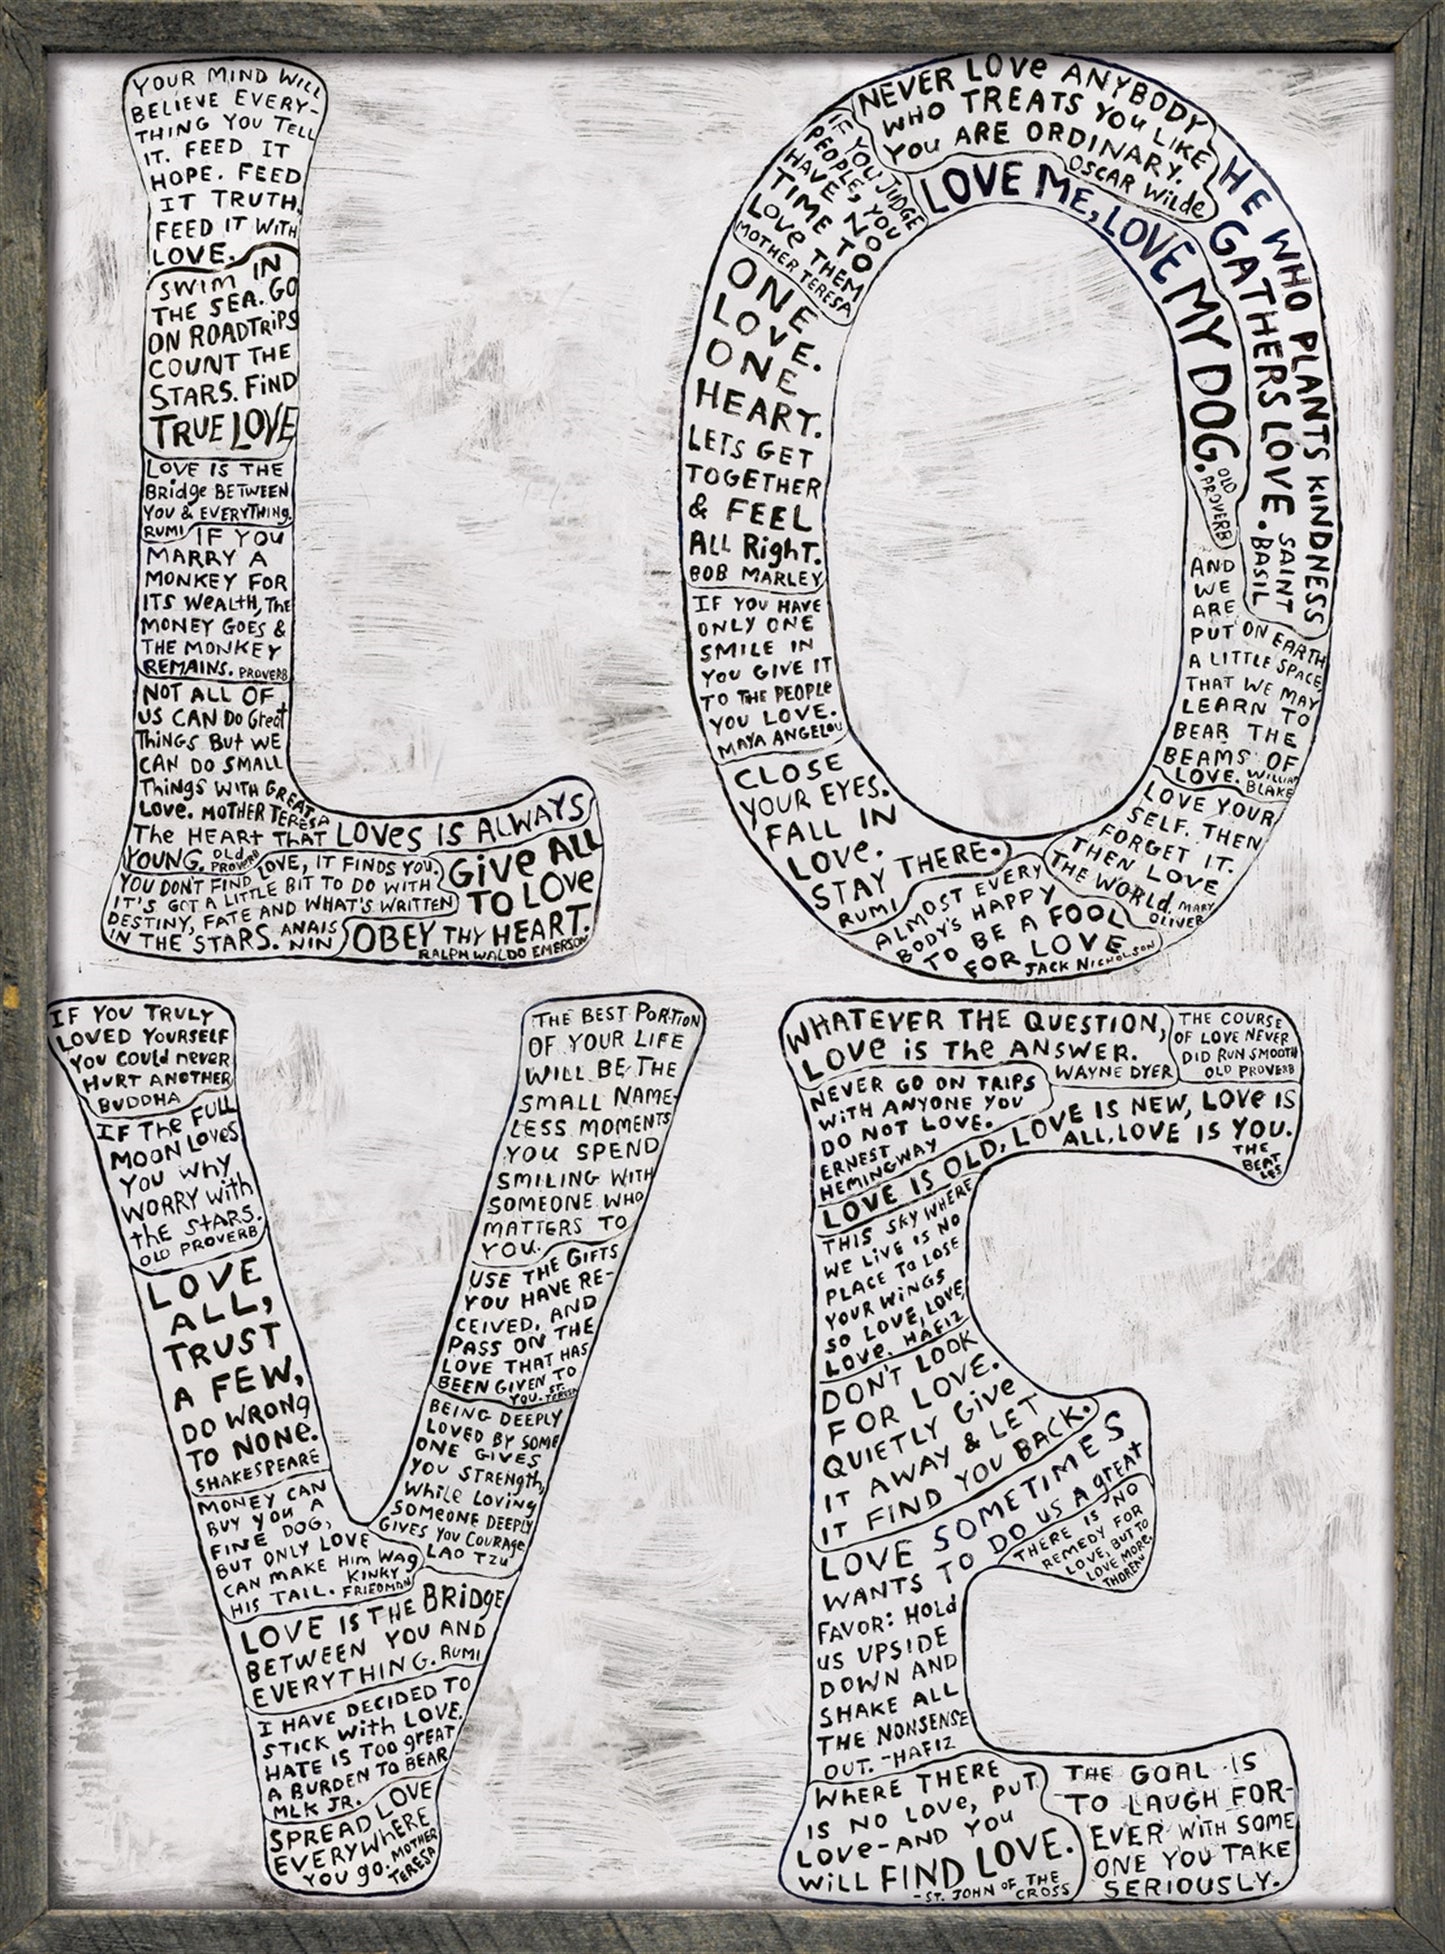 YOUR MIND WILL
BELIEVE EVERY-
THING YOU TELL
IT. FEED IT
HOPE. FEED
IT TRUTH.
FEED IT WITH
LOVE.
SWIM IN
THE SEA. GO
ON ROADTRIPS
COUNT THE
STARS. FIND
TRUE LOVE
LOVE IS THE
BRidge BETWEEN
YOU & EVERYTHING.
RUMI
IF YOU
MARRY A
MONKEY FOR
ITS WeALtH, The
MONEY GOES &
THE MONKEY
REMAINS. PROVERB
NOT ALL OF
US CAN DO Great
THiNGS BUt WE
CAN DO SMALL
THiNgS WITH GREAT
Love. MOTHER TERESA
The HEARt THAT LOVES IS ALWAYS
YOUNG. OLd PROVERB
YOU DON'T FIND LOVE, IT FINDS YOU.
IT'S GOT A LITTLE BIT TO DO WITH
DESTINY, FATE AND WHAT'S WRITTEN
IN THE STARS. ANAIS
NIN
GiVE ALL
TO LOVe
OBEY THY HEART.
RALPH WALDO EMERSON
NEVER LOVe ANYBODY
WHO TREATS YOU LIKE
YOU ARE ORDINARY.
OSCAR WiLde
IF YOU JUDGE
PEOPLE, YOU
HAVE NO
TIME TO
LOVe THEM
MOTHER TERESA
LOVE ME, LOVE MY DOG. OLD
PROVERB
HE WHO PLANTS KINDNESS
GATHERS LOVE. SAINT
BASIL
ONE
LOVE.
ONE
HEART.
LETS GET
TOGETHER
& FEEL
ALL RigHT.
BOB MARLEY
IF YOU HAVE
ONLY ONE
SMILE IN
YOU GIVE IT
TO THE PEOPLe
YOU LOVE.
MAYA ANGELOU
CLOSE
YOUR EYES.
FALL IN
LOVe.
STAY THERE.
RUMI
ALMOST EVERY
BODY'S HAPPY
TO BE A FOOL
FOR LOVE
JACK NICHOLSON
AND
WE
ARE
PUT ON EARTH
A LITTLE SPACE,
THAT WE MAY
LEARN TO
BEAR THE
BEAMS OF
LOVE. WILLIAM
BLAKE
LOVE YOUR
SELF. THEN
FORGET IT.
THEN LOVE
THE WORLd. MARY
OLIVER
IF YOU TRULY
LOVED YOURSELF
YOU COULd neveR
HURT ANOTHER
BUDDHA
IF THe FULL
MOON LOVeS
YOU WHY
WORRY WiTH
tHe STARS.
OLD PROVERB
LOVE
ALL,
TRUST
A FEW,
DO WRONg
TO NONe.
SHAKESPEARE
MONEY CAN
BUY YOU A
FINE DOG,
BUT ONLY LOVE
CAN MAKE HiM WAg
HIS TAIL. KINKY
FRIEDMAN
THE BEST PORTION
OF YOUR LIFE
WILL BE THE
SMALL NAME-
LESS MOMENTS
YOU SPEND
SMILING WITH
SOMEONE WHO
MATTERS TO
YOU.
USE THE GIFTS
YOU HAVE RE-
CEIVED, AND
PASS ON THE
LOVE THAT HAS
BEEN GIVEN TO
YOU. ST.
TERESA
BEING DEEPLY
LOVED BY SOME
ONE GIVES
YOU STRENgtH,
WHiLe LOViNg
SOMEONE DEEPLY
GIVES YOU COURAgE
LAO TZU
LOVE IS THE BRIDgE
BETWEEN YOU AND
EVERYTHING. RUMI
I HAVE DECIDED TO
STICK WiTH LOVE.
HATE IS TOO gREAT
A BURDEN TO BEAR
MLK JR.
SPREAD LOVE
EVERYWHERE
YOU gO. MOTHER
TERESA
WHATEVER THE QUESTION,
LOVe iS THe ANSWER.
WAYNE DYER
THE COURSE
OF LOVE NEVER
DID RUN SMOOTH
OLD PROVERB
NEVER GO ON TRIPS
WiTH ANYONE YOU
DO NOT LOVE.
ERNEST
HEMINGWAY
LOVE IS OLD, LOVE IS NEW, LOVe IS
ALL, LOVE IS YOU.
THE
BEAT
LES
THIS SKY WHERE
WE LiVE IS NO
PLACE TO LOSE
YOUR WINGS
SO LOVE, LOVE,
LOVe. HAFIZ
DON'T LOOK
FOR LOVE.
QUIETLY GiVe
IT AWAY & LET
IT FIND YOU BACK.
LOVE SOMETIMES
WANTS TO DO US A gREAt
FAVOR: HOLd
US UPSIDE
DOWN AND
SHAKE ALL
THE NONSENSE
OUT. -HAFIZ
THERE IS NO
REMEDY FOR
LOVE, BUT TO
LOVE MORE.
THOREAU
WHERE THERE
IS NO LOVe, PUT
LOVe-AND YOU
WiLL FIND LOVE.
-ST. JOHN OF THE
CROSS
THE GOAL IS
TO LAUGH FOR-
EVER WITH SOME
ONE YOU TAKE
SERIOUSLY.